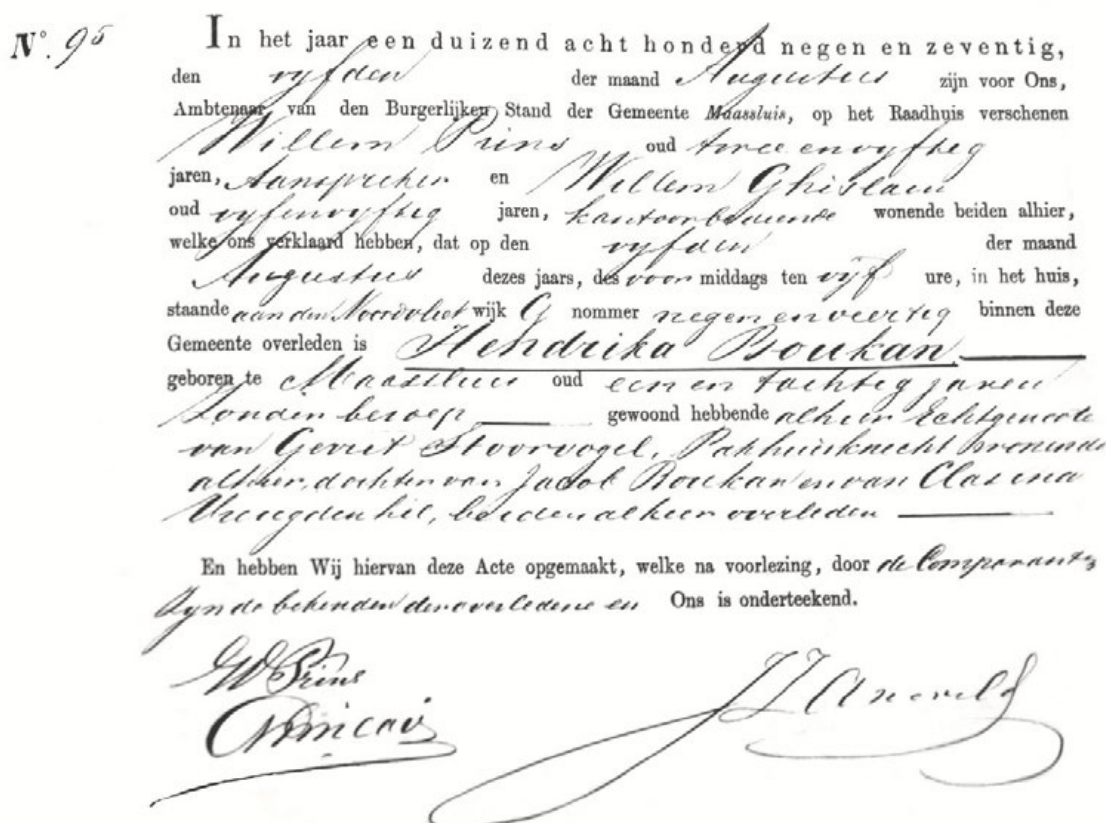 N°. 95
In het jaar een duizend acht honderd negen en zeventig,
den vyfden der maand Augustus zijn voor Ons,
Ambtenaar van den Burgerlijken Stand der Gemeente Maassluis, op het Raadhuis verschenen
Willem Prins oud twee en vyftig
jaren, Aanspreker en Willem Ghislain
oud vyfenvyftig jaren, kantoorbediende wonende beiden alhier,
welke ons verklaard hebben, dat op den vyfden der maand
Augustus dezes jaars, des voor middags ten vyf ure, in het huis,
staande aan den Noordvliet wijk G nommer negen en veertig binnen deze
Gemeente overleden is Hendrika Boukan
geboren te Maassluis oud een en tachtig jaren
Zonder beroep gewoond hebbende alhier Echtgenoote
van Gerrit Stoorvogel, Pakhuisknecht wonende
alhier, dochter van Jacob Boukan en van Clasina
Vreugdenhil, beiden alhier overleden
En hebben Wij hiervan deze Acte opgemaakt, welke na voorlezing, door de Comparanten
Zynde bekenden der overledene en Ons is onderteekend.
W Prins